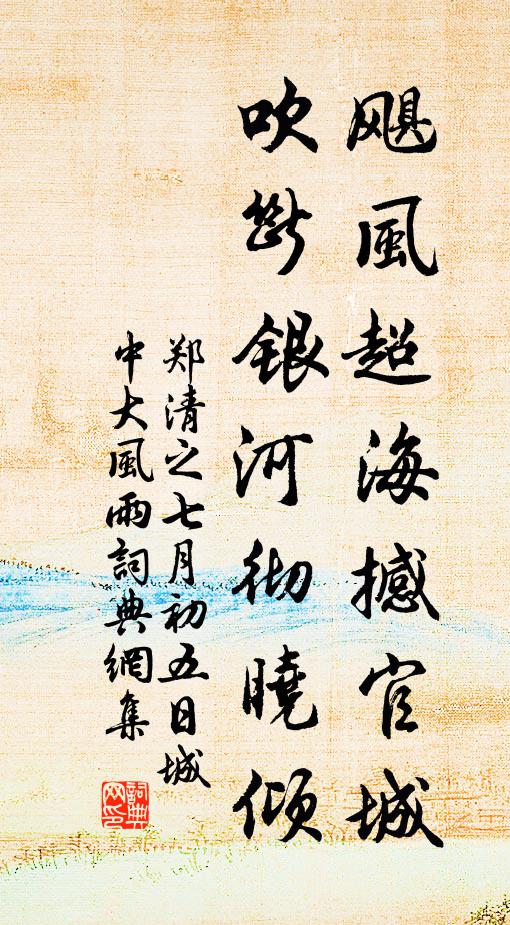 飓風超海撼官城
吹斷銀河彻曉傾
郑清之七月初五日城
中大風雨詞典網集
詞典
网印